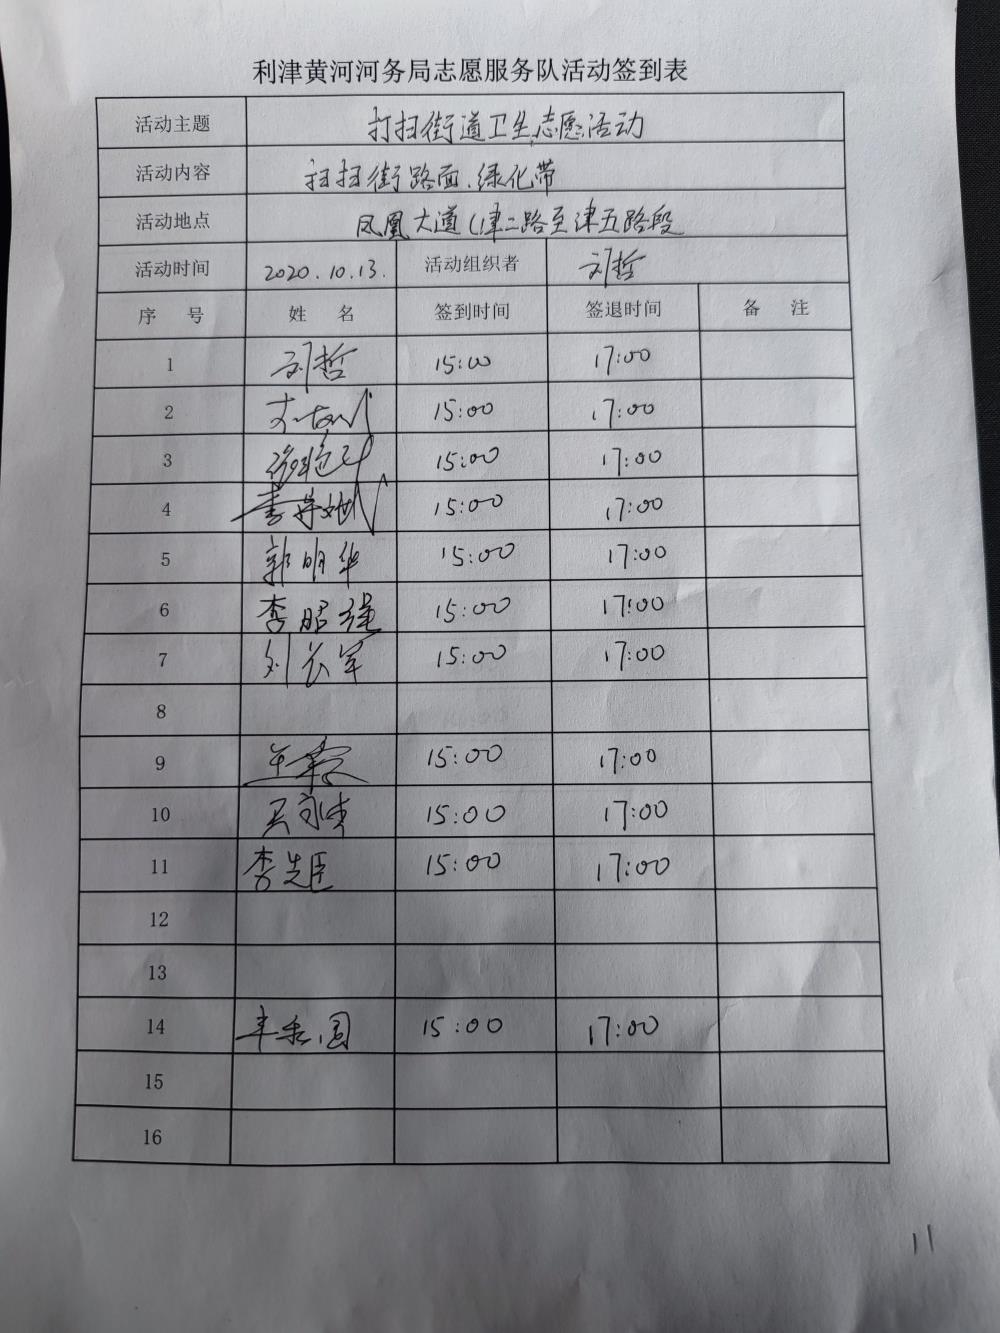 利津黄河河务局志愿服务队活动签到表
活动主题 打扫街道卫生志愿活动
活动内容 扫扫街路面、绿化带
活动地点 凤凰大道(津二路至津五路段
活动时间 2020.10.13. 活动组织者 刘哲
序 号 姓 名 签到时间 签退时间 备 注
1 刘哲 15:00 17:00
2 15:00 17:00
3 15:00 17:00
4 15:00 17:00
5 郭明华 15:00 17:00
6 李昭强 15:00 17:00
7 刘长军 15:00 17:00
8
9 15:00 17:00
10 15:00 17:00
11 李先臣 15:00 17:00
12
13
14 15:00 17:00
15
16
11